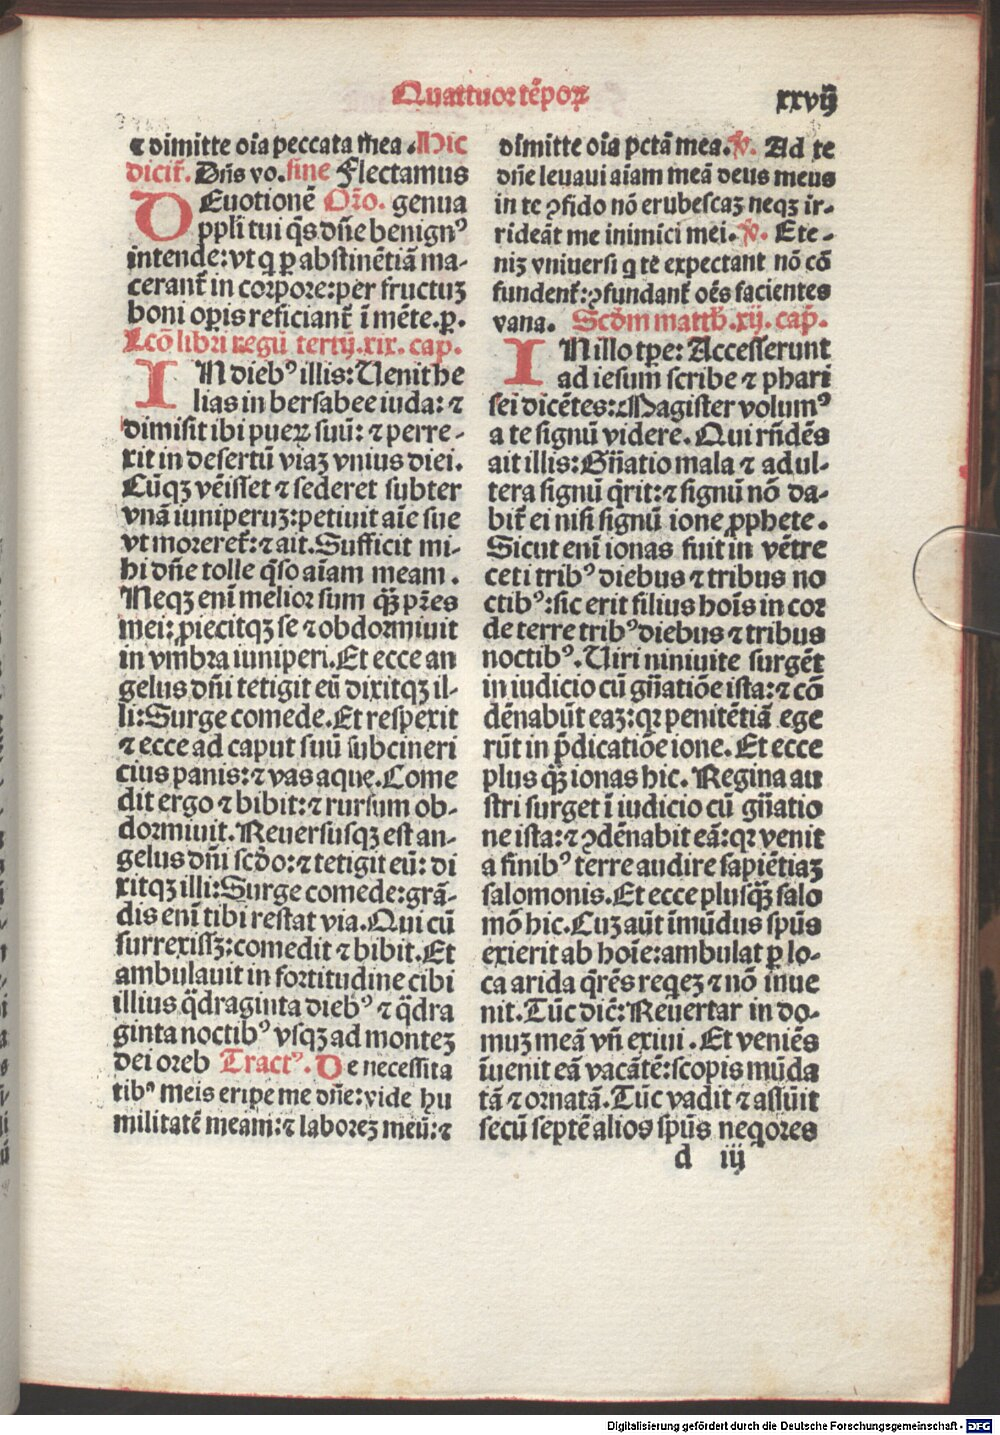 Quattuor tēpoꝝ
xxvij
⁊ dimitte oīa peccata mea. Hic
dicit̄. Dn̄s vo. sine Flectamus
DEuotionē Oro. genua
ppl̄i tui q̄s dn̄e benignꝰ
intende: vt q ꝑ abstinētiā ma-
cerant̄ in corpore: per fructuꝫ
boni oꝑis reficiant̄ ī mēte. p.
Lcō libri regū tertij. xix. cap.
IN diebꝰ illis: Uenit he
lias in bersabee iuda: ⁊
dimisit ibi pueꝝ suū: ⁊ perre-
xit in desertū viaꝫ vnius diei.
Cūqꝫ vēisset ⁊ sederet subter
vnā iuniperuꝫ: petiuit aīe sue
vt moreret̄: ⁊ ait. Sufficit mi-
hi dn̄e tolle q̄so aīam meam.
Neqꝫ enī melior sum qꝫ̄ pr̄es
mei: ꝓiecitqꝫ se ⁊ obdormiuit
in vmbra iuniperi. Et ecce an
gelus dn̄i tetigit eū dixitqꝫ il-
li: Surge comede. Et respexit
⁊ ecce ad caput suū subcineri
cius panis: ⁊ vas aque. Come
dit ergo ⁊ bibit: ⁊ rursum ob-
dormiuit. Reuersusqꝫ est an-
gelus dn̄i scd̄o: ⁊ tetigit eū: di
xitqꝫ illi: Surge comede: grā-
dis enī tibi restat via. Qui cū
surrexissꝫ: comedit ⁊ bibit. Et
ambulauit in fortitudine cibi
illius q̄draginta diebꝰ ⁊ q̄dra
ginta noctibꝰ vsqꝫ ad monteꝫ
dei oreb Tractꝰ. De necessita
tibꝰ meis eripe me dn̄e: vide hu
militatē meam: ⁊ laboreꝫ meū: ⁊
dimitte oīa pctā mea. ℣. Ad te
dn̄e leuaui aīam meā deus meus
in te ꝯfido nō erubescaꝫ neqꝫ ir-
rideāt me inimici mei. ℣. Ete-
niꝫ vniuersi q te expectant nō cō
fundent̄: ꝯfundant̄ oēs facientes
vana. Scd̄m matth̄. xij. cap̄.
IN illo tp̄e: Accesserunt
ad iesum scribe ⁊ phari
sei dicētes: Magister volumꝰ
a te signū videre. Qui rn̄dēs
ait illis: Gn̄atio mala ⁊ adul-
tera signū q̄rit: ⁊ signū nō da-
bit̄ ei nisi signū ione ꝓphete.
Sicut enī ionas fuit in vētre
ceti tribꝰ diebus ⁊ tribus no
ctibꝰ: sic erit filius hoīs in cor
de terre tribꝰ diebus ⁊ tribus
noctibꝰ. Uiri niniuite surgēt
in iudicio cū gn̄atiōe ista: ⁊ cō
dēnabūt eaꝫ: qꝛ penitētiā ege
rūt in p̄dicatiōe ione. Et ecce
plus qꝫ̄ ionas hic. Regina au
stri surget ī iudicio cū gn̄atio
ne ista: ⁊ ꝯdēnabit eā: qꝛ venit
a finibꝰ terre audire sapiētiaꝫ
salomonis. Et ecce plusqꝫ̄ salo
mō hic. Cuꝫ aūt īmūdus spūs
exierit ab hoīe: ambulat ꝑ lo-
ca arida q̄rēs reqeꝫ ⁊ nō inue
nit. Tūc dic̄: Reuertar in do-
muꝫ meā vn̄ exiui. Et veniēs
īuenit eā vacātē: scopis mūda
tā ⁊ ornatā. Tūc vadit ⁊ assūit
secū septē alios spūs neqores
d iij
Digitalisierung gefördert durch die Deutsche Forschungsgemeinschaft - DFG